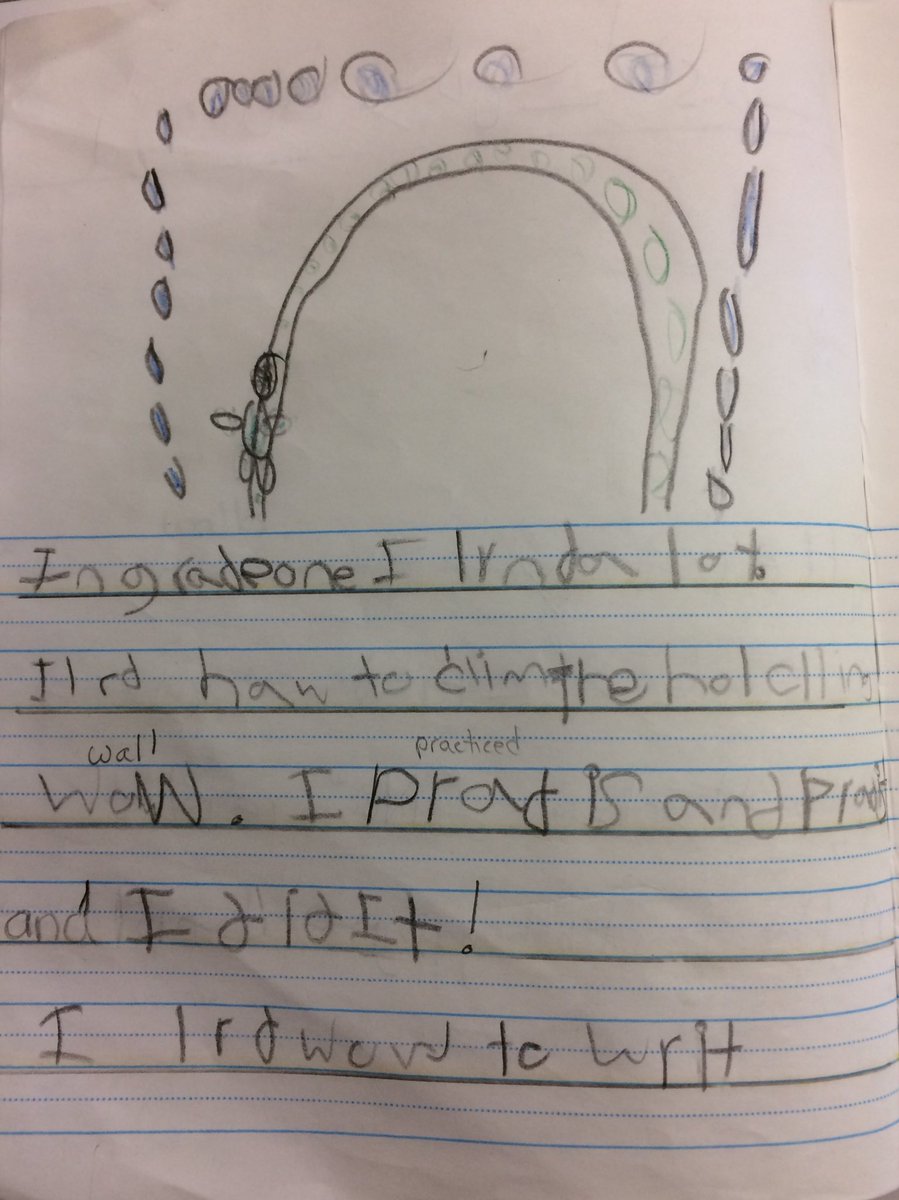 In grade one I lrnd a lot.
I lrd haw to clim the hol clim
wall practiced
WoW. I PradtIS and prat
and I didIt!
I lrd waw to writ